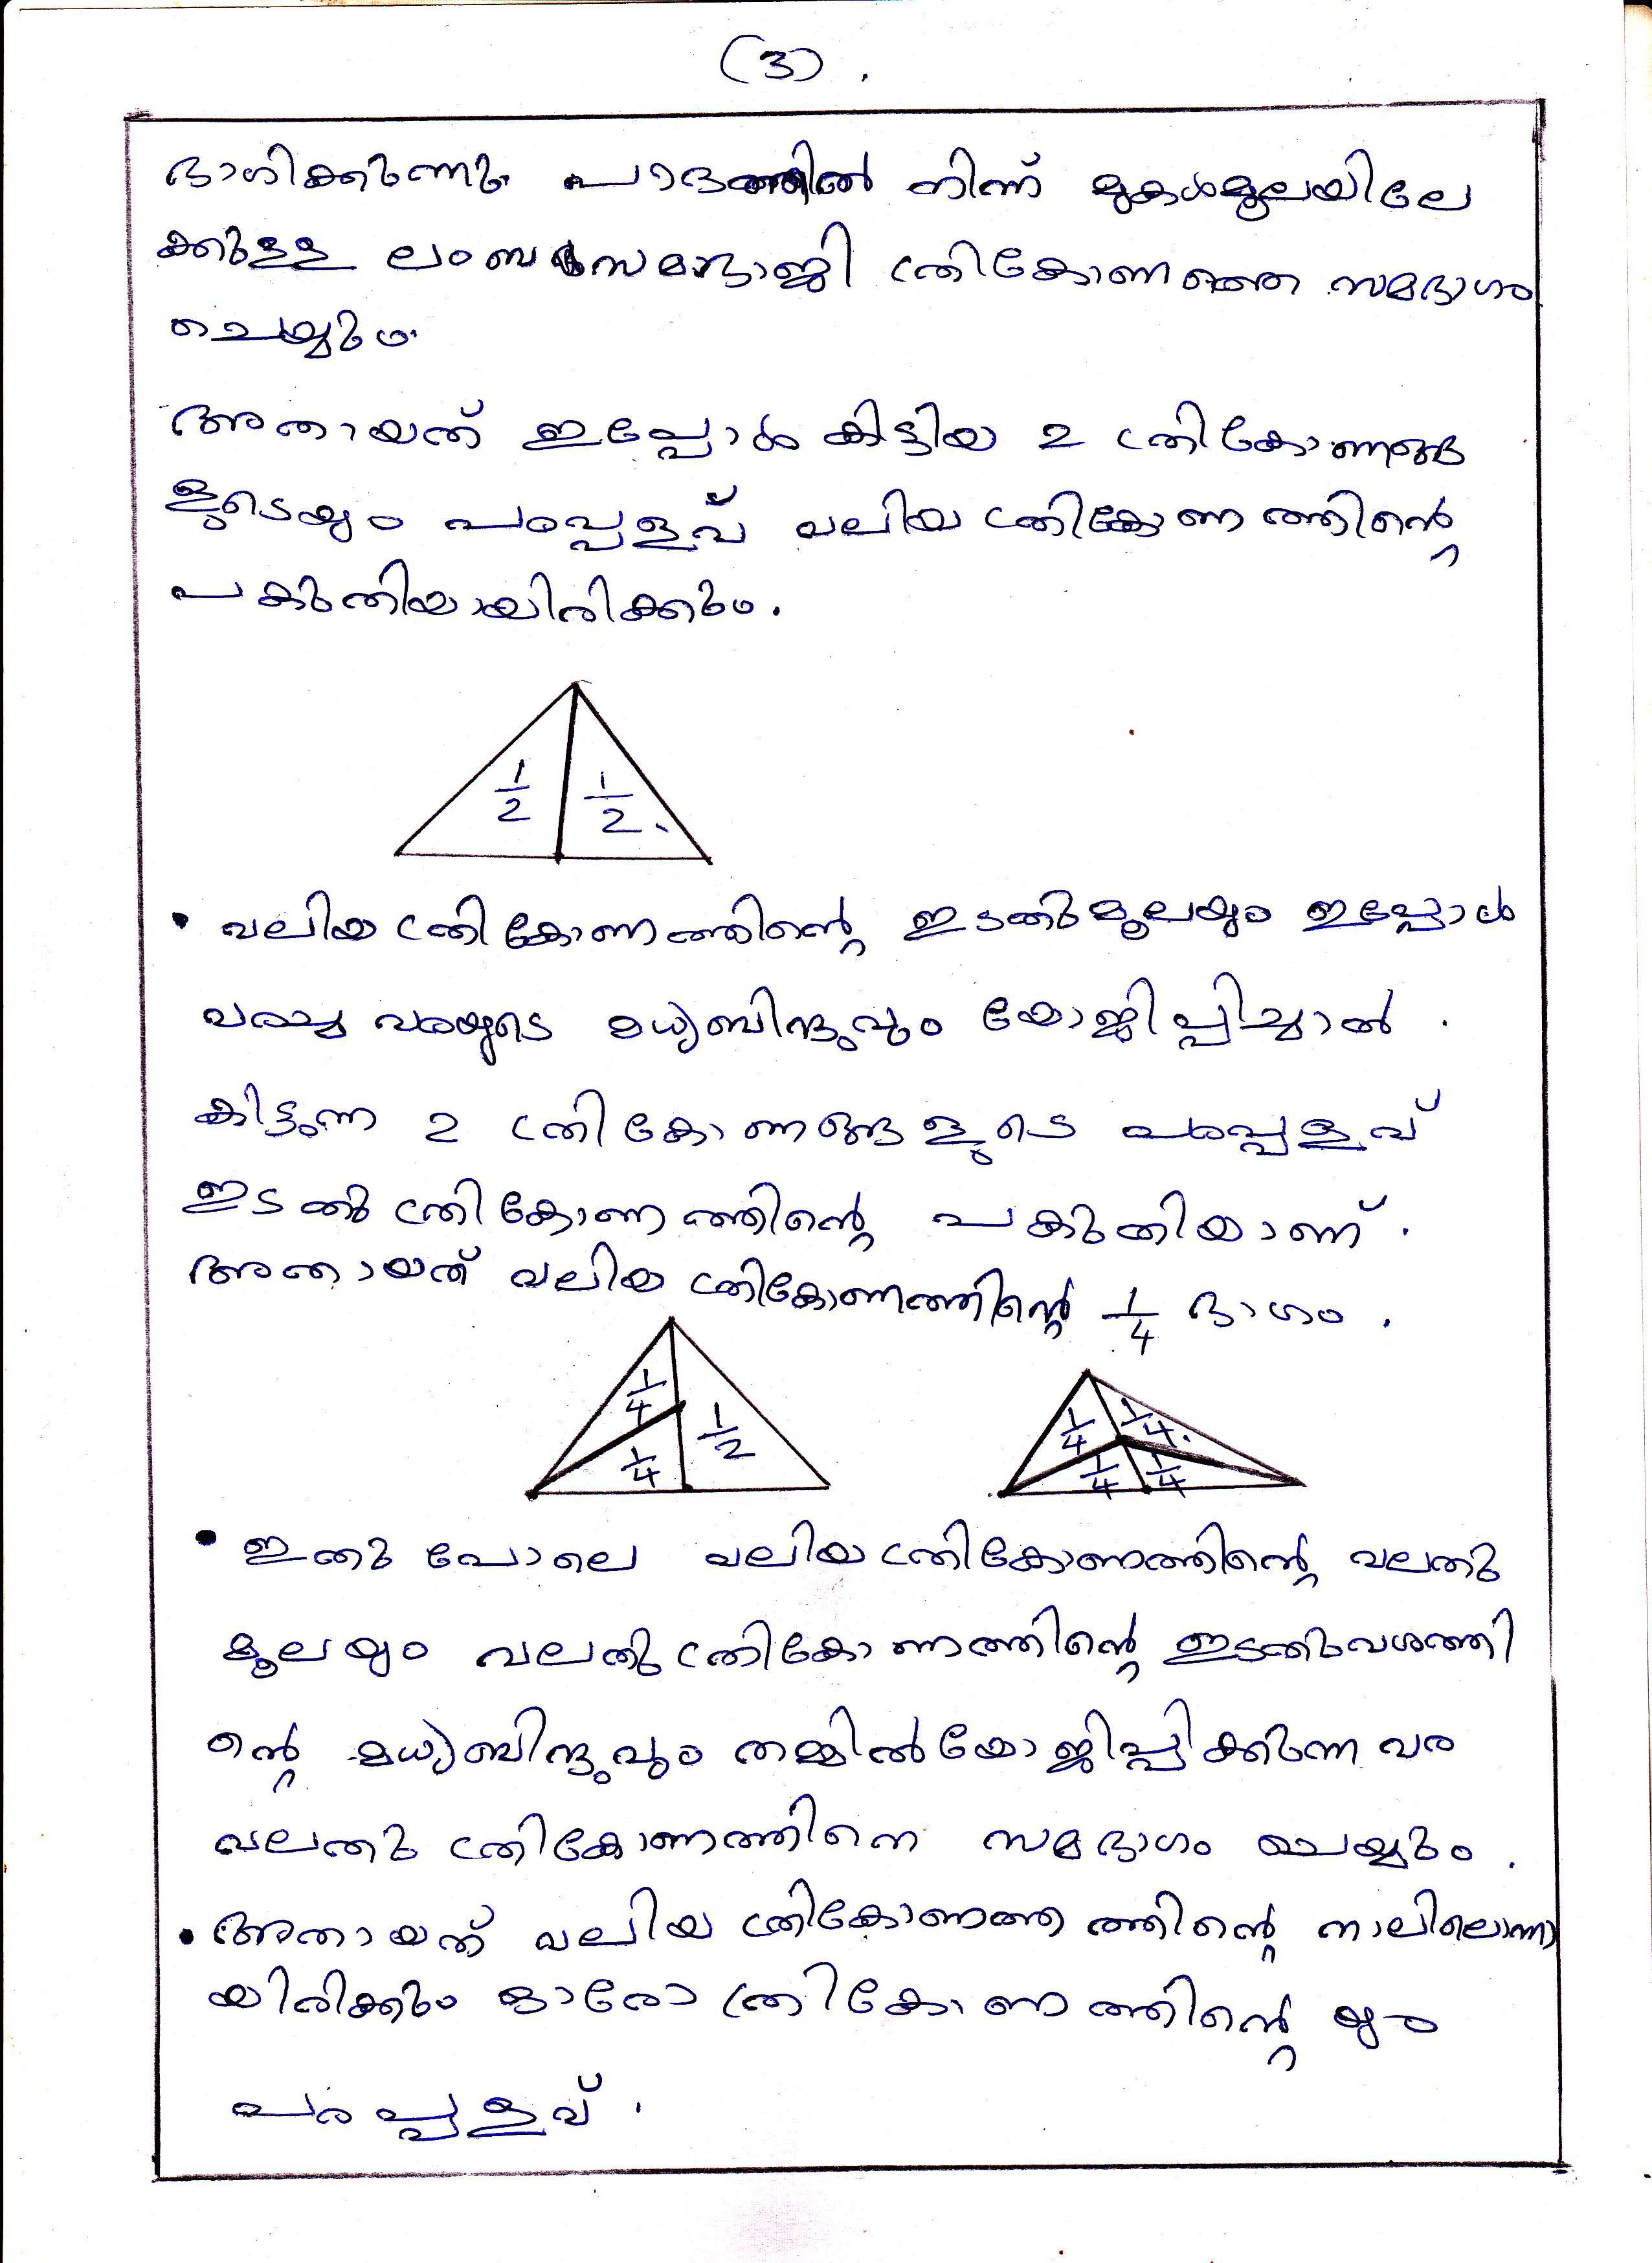 (3).
ഭാഗിക്കുന്നു. പാദത്തിൽ നിന്ന് മുകൾമൂലയിലേ
ക്കുള്ള ലംബം സമഭുജ ത്രികോണത്തെ സമഭാഗം
ചെയ്യും.
അതായത് ഇപ്പോൾ കിട്ടിയ 2 ത്രികോണങ്ങ
ളുടെയും പരപ്പളവ് വലിയ ത്രികോണത്തിന്റെ
പകുതിയായിരിക്കും.
1/2 1/2
• വലിയ ത്രികോണത്തിന്റെ ഇടതുമൂലയും ഇപ്പോൾ
വരച്ച വരയുടെ മധ്യബിന്ദുവും യോജിപ്പിച്ചാൽ
കിട്ടുന്ന 2 ത്രികോണങ്ങളുടെ പരപ്പളവ്
ഇടതു ത്രികോണത്തിന്റെ പകുതിയാണ്.
അതായത് വലിയ ത്രികോണത്തിന്റെ 1/4 ഭാഗം.
1/4 1/4 1/2 1/4 1/4 1/4 1/4
• ഇതു പോലെ വലിയ ത്രികോണത്തിന്റെ വലതു
മൂലയും വലതു ത്രികോണത്തിന്റെ ഇടതുവശത്തി
ന്റെ മധ്യബിന്ദുവും തമ്മിൽ യോജിപ്പിക്കുന്ന വര
വലതു ത്രികോണത്തിനെ സമഭാഗം ചെയ്യും.
• അതായത് വലിയ ത്രികോണത്ത ത്തിന്റെ നാലിലൊന്നാ
യിരിക്കും ഓരോ ത്രികോണത്തിന്റെ യും
പരപ്പളവ്.